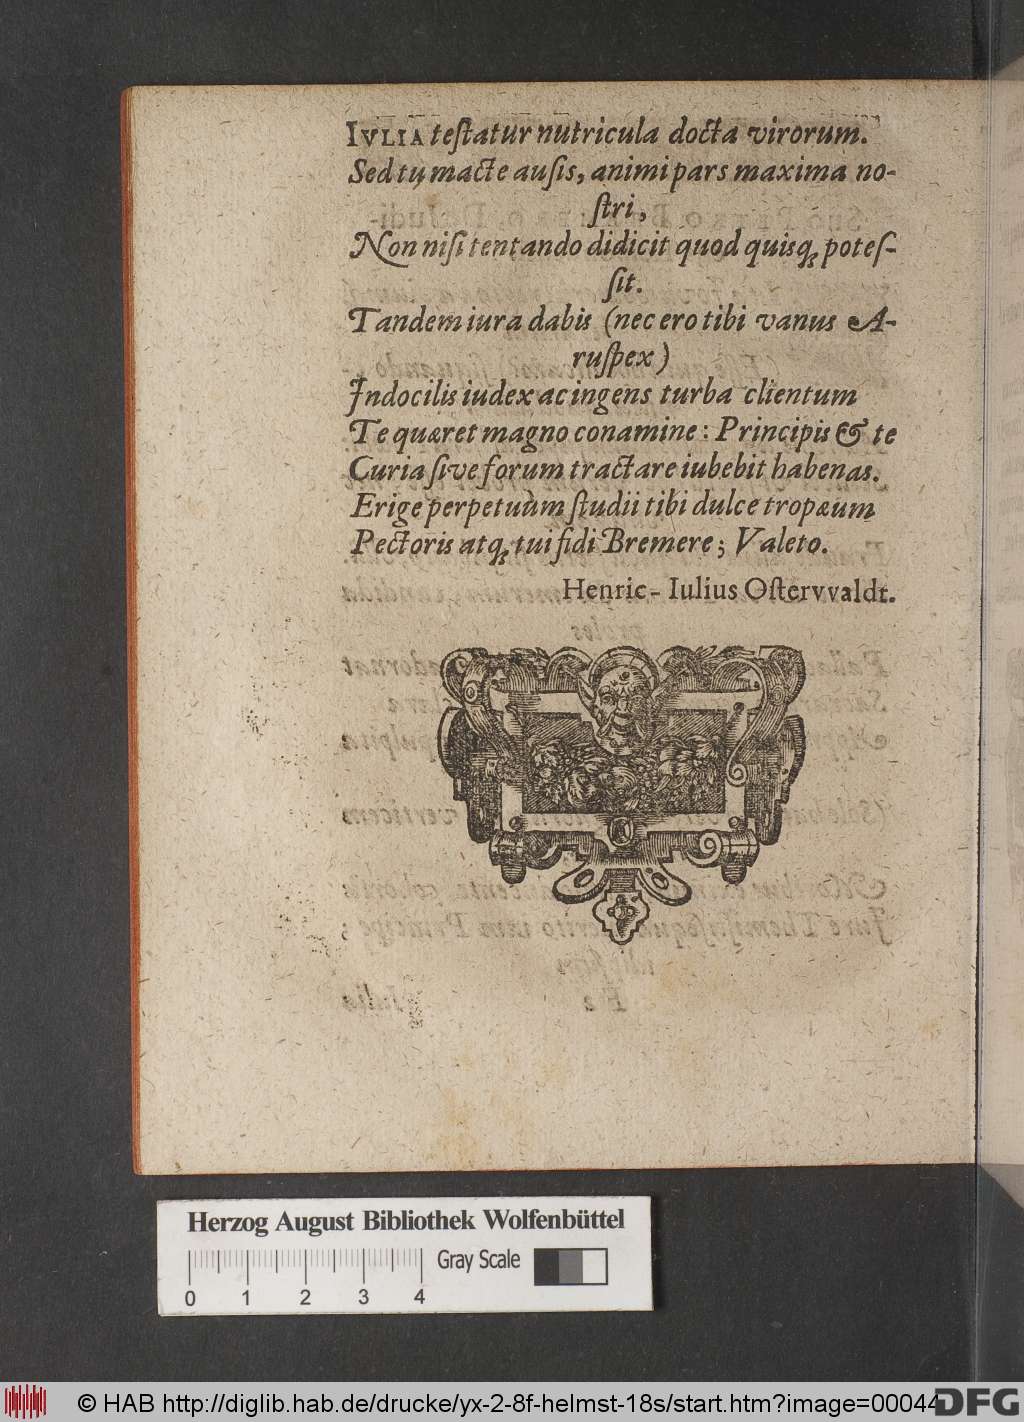 IVLIA teſtatur nutricula docta virorum.
Sed tu macte auſis, animi pars maxima no-
ſtri,
Non niſi tentando didicit quod quisq́; poteſ-
ſit.
Tandem iura dabis (nec ero tibi vanus A-
ruſpex)
Indocilis iudex ac ingens turba clientum
Te quæret magno conamine: Principis & te
Curia ſive forum tractare iubebit habenas.
Erige perpetuùm ſtudii tibi dulce tropæum
Pectoris atq́; tui fidi Bremere; Valeto.
Henric-Iulius Oſtervvaldt.
Herzog August Bibliothek Wolfenbüttel
Gray Scale
0 1 2 3 4
© HAB http://diglib.hab.de/drucke/yx-2-8f-helmst-18s/start.htm?image=00044
DFG